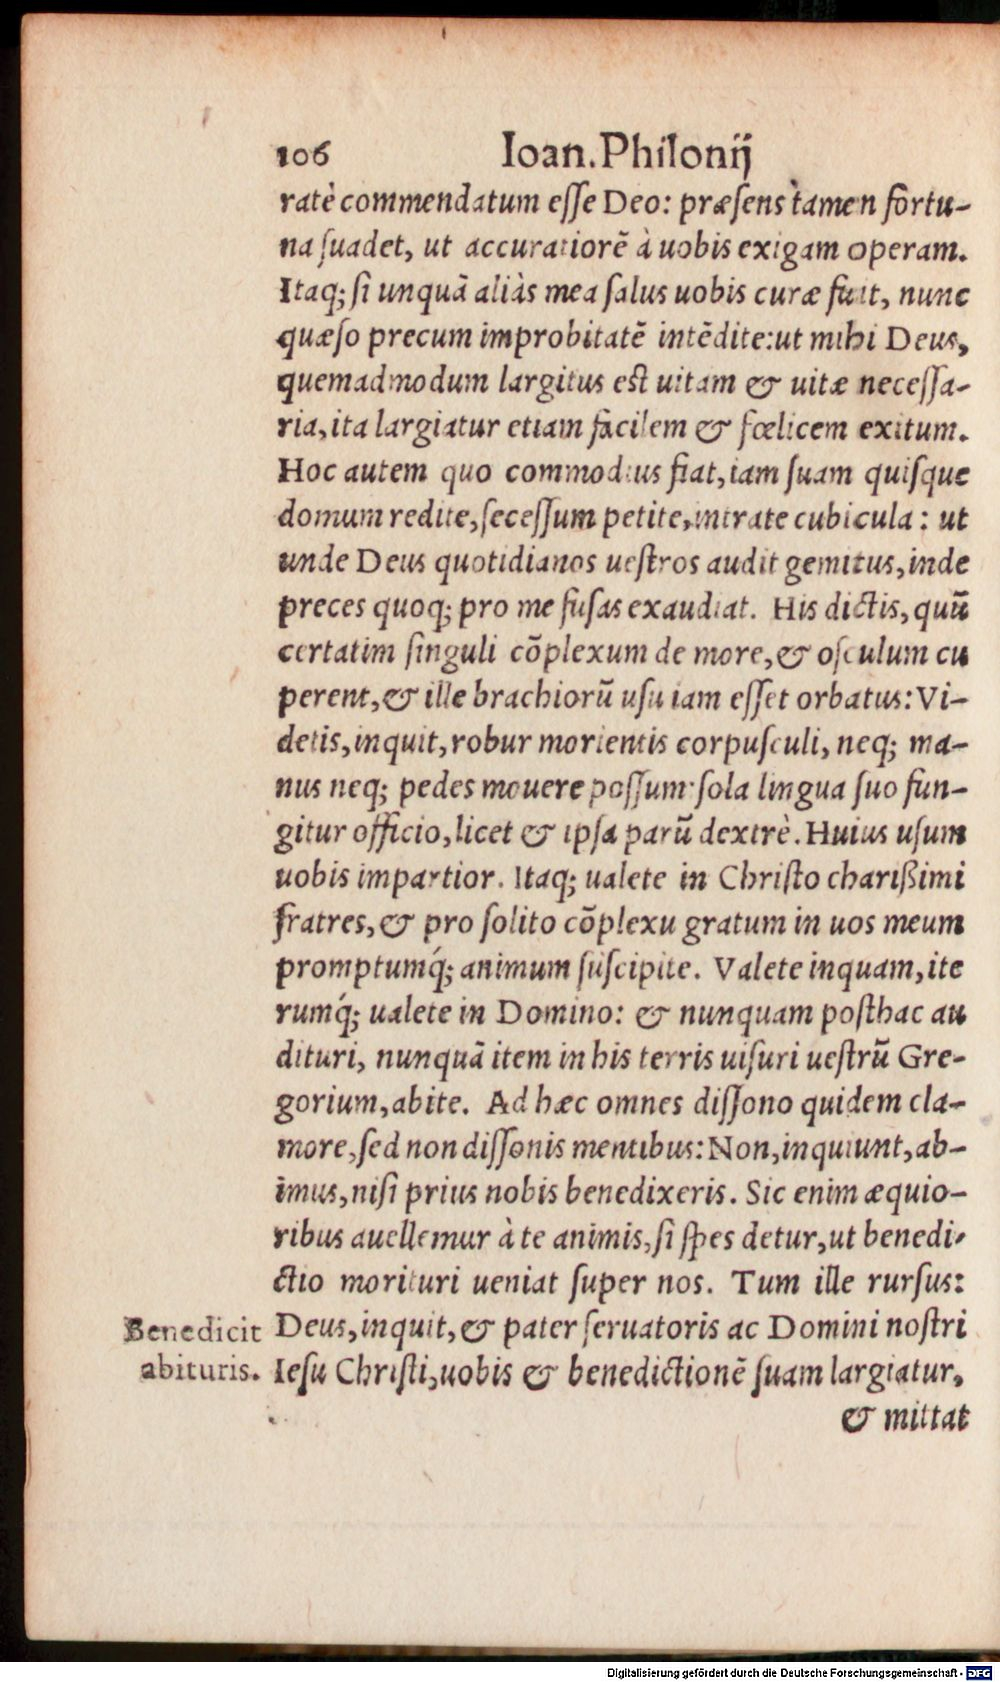 106 Ioan. Philonij
ratè commendatum esse Deo: præsens tamen fortu-
na suadet, ut accuratiorē à uobis exigam operam.
Itaq; si unquā aliàs mea salus uobis curæ fuit, nunc
quæso precum improbitatē intēdite: ut mihi Deus,
quemadmodum largitus est uitam & uitæ necessa-
ria, ita largiatur etiam facilem & fœlicem exitum.
Hoc autem quo commodius fiat, iam suam quisque
domum redite, secessum petite, intrate cubicula: ut
unde Deus quotidianos uestros audit gemitus, inde
preces quoq; pro me fusas exaudiat. His dictis, quū
certatim singuli cōplexum de more, & osculum cu
perent, & ille brachiorū usu iam esset orbatus: Vi-
detis, inquit, robur morientis corpusculi, neq; ma-
nus neq; pedes mouere possum: sola lingua suo fun-
gitur officio, licet & ipsa parū dextrè. Huius usum
uobis impartior. Itaq; ualete in Christo charißimi
fratres, & pro solito cōplexu gratum in uos meum
promptumq́; animum suscipite. Valete inquam, ite
rumq́; ualete in Domino: & nunquam posthac au
dituri, nunquā item in his terris uisuri uestrū Gre-
gorium, abite. Ad hæc omnes dissono quidem cla-
more, sed non dissonis mentibus: Non, inquiunt, ab-
imus, nisi prius nobis benedixeris. Sic enim æquio-
ribus auellemur à te animis, si spes detur, ut benedi-
ctio morituri ueniat super nos. Tum ille rursus:
Benedicit Deus, inquit, & pater seruatoris ac Domini nostri
abituris. Iesu Christi, uobis & benedictionē suam largiatur,
& mittat
Digitalisierung gefördert durch die Deutsche Forschungsgemeinschaft - DFG